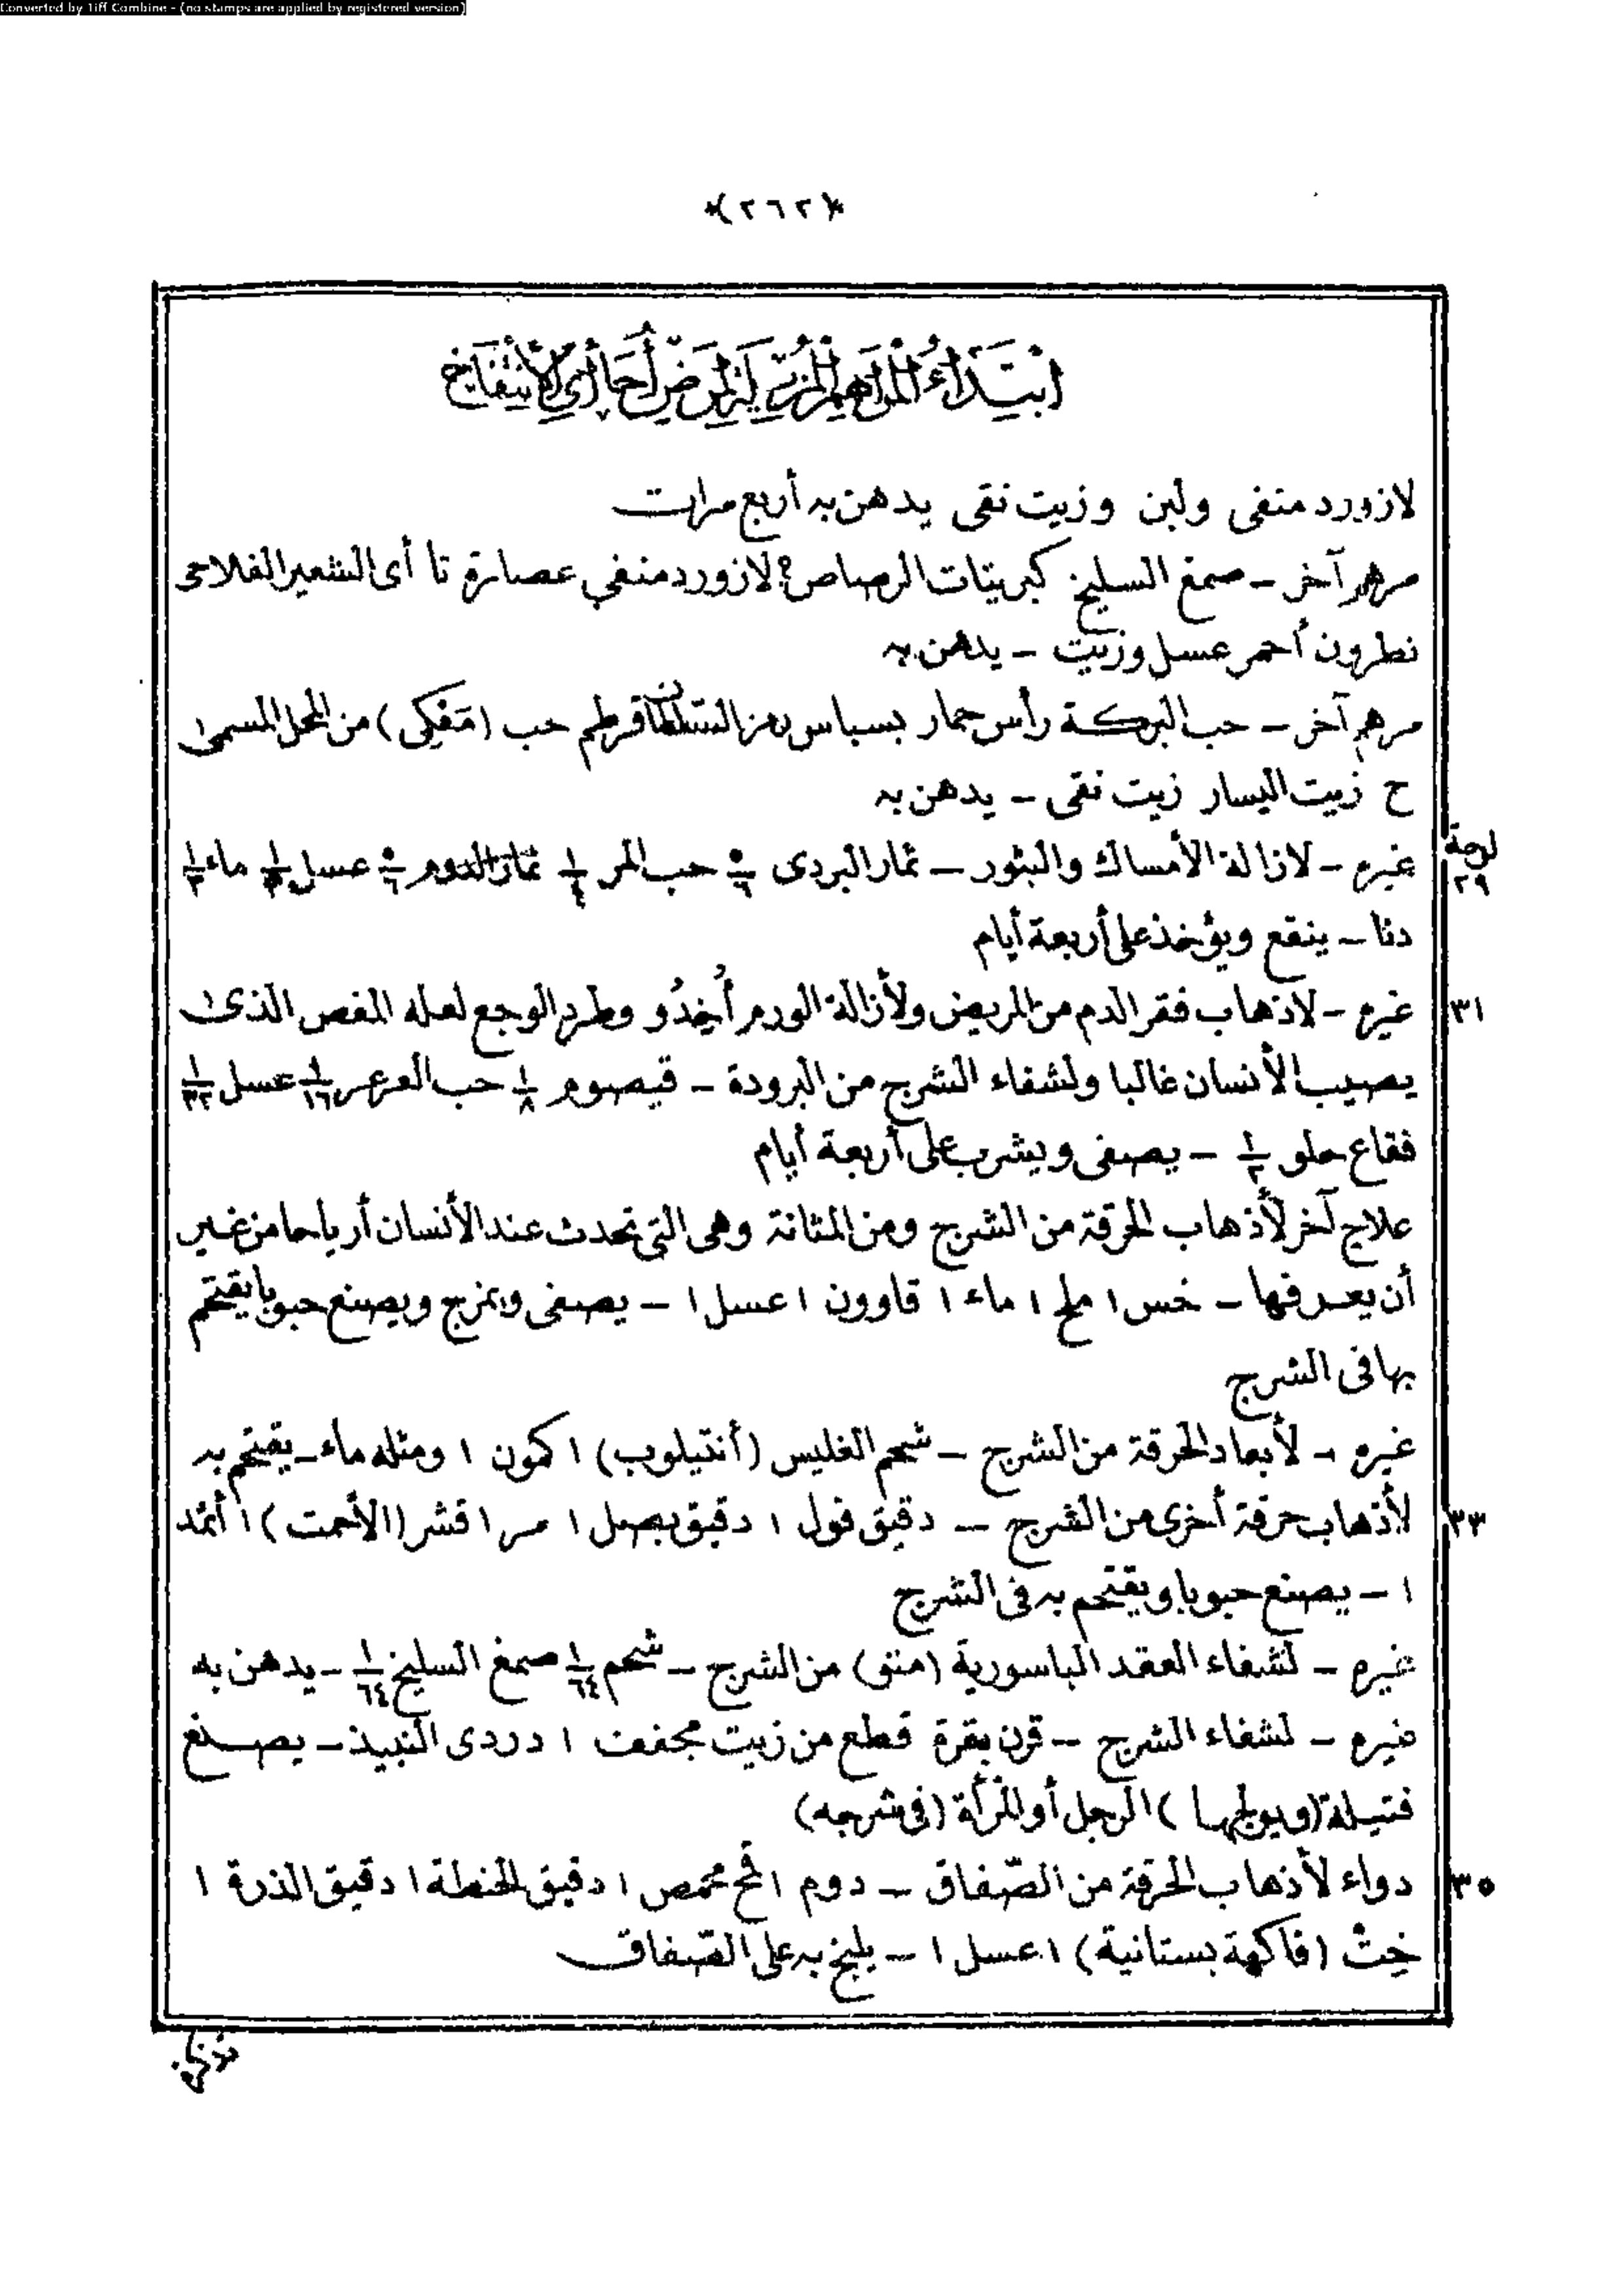 Converted by Tiff Combine - (no stamps are applied by registered version)
*(٢٦٢)*
ابْتِدَاءُ المَرَاهِم المُزِيلَةِ لِمَرَضِ أُحَا أَيِ الإنْتِفَاخِ
لازورد منقى ولبن وزيت نقى يدهن به أربع مرات
مرهم آخر – صمغ السليخ كبريتات الرصاص؟ لازورد منقى عصارة تا أى الشعير الفلاحى
نطرون أحمر عسل وزيت – يدهن به
مرهم آخر – حب البركة رأس حمار بسباس قرطم حب (مَفَكِى) من المحل المسمى
ح زيت اليسار زيت نقى – يدهن به
لوحة ٢٩
غيره – لازالة الأمساك والبثور – ثمار البردى ٥/٦ حب المر ١/٤ ثمار الدوم ٥/٦ عسل ماء ١/٢
دنا – ينقع ويؤخذ على أربعة أيام
٣١
غيره – لاذهاب فقر الدم من المريض ولأزالة الورم أُخِدُو وطرد الوجع لعله المغص الذى
يصيب الأنسان غالبا ولشفاء الشرج من البرودة – قيصوم ١/٨ حب العرعر ١/١٦ عسل ١/٣٢
فقاع حلو ١/٢ – يصفى ويشرب على أربعة أيام
علاج آخر لأذهاب الحرقة من الشرج ومن المثانة وهى التى تحدث عند الأنسان أرياحا من غير
أن يعرفها – خس ١ ملح ١ ماء ١ قاوون ١ عسل ١ – يصفى ويمزج ويصنع حبوبا يقتحم
بها فى الشرج
غيره – لأبعاد الحرقة من الشرج – شحم الغليس (أنتيلوب) ١ كمون ١ ومثله ماء – يقتحم به
٣٣
لأذهاب حرقة أخرى من الشرج – دقيق فول ١ دقيق بصل ١ مر ١ قشر (الأحمت) ١ أثمد
١ – يصنع حبوبا ويقتحم به فى الشرج
غيره – لشفاء العقد الباسورية (منتو) من الشرج – شحم ١/٦٤ صمغ السليخ ١/٦٤ – يدهن به
غيره – لشفاء الشرج – قرن بقرة قطع من زيت مجفف ١ دردى النبيذ – يصنع
فتيلة (ويولجها) الرجل أو المرأة (فى شرجه)
٣٥
دواء لأذهاب الحرقة من الصّفاق – دوم ١ قمح محمص ١ دقيق الحنطة ١ دقيق الذرة ١
خِتْ (فاكهة بستانية) ١ عسل ١ – يلبخ به على الصّفاق